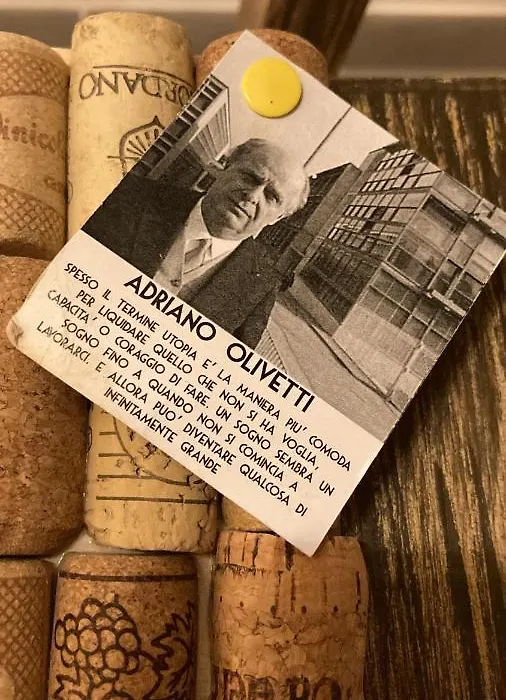 ORDANO
ADRIANO OLIVETTI
SPESSO IL TERMINE UTOPIA E' LA MANIERA PIU' COMODA
PER LIQUIDARE QUELLO CHE NON SI HA VOGLIA,
CAPACITA' O CORAGGIO DI FARE. UN SOGNO SEMBRA UN
SOGNO FINO A QUANDO NON SI COMINCIA A
LAVORARCI. E ALLORA PUO' DIVENTARE QUALCOSA DI
INFINITAMENTE GRANDE